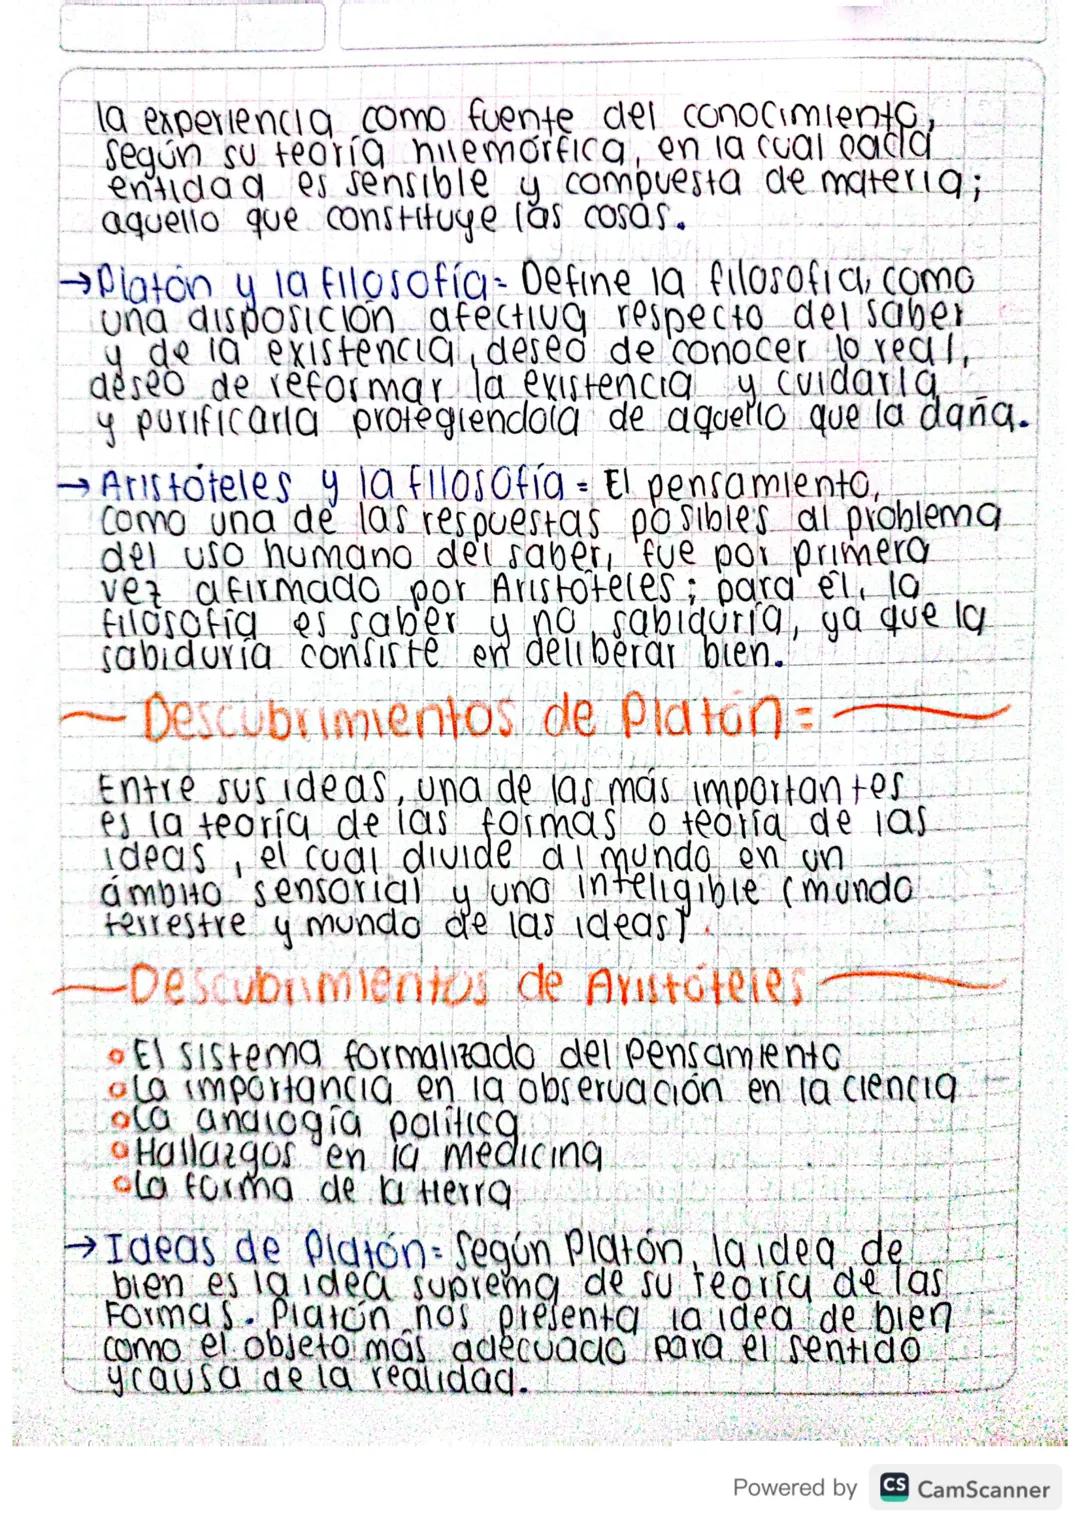 la experiencia como fuente del conocimiento,
según su teoría hilemórfica, en la cual cada
entidad es sensible y compuesta de materia;
aquello que constituye las cosas.
→Platón y la filosofía= Define la filosofia, como
una disposición afectiva respecto del saber
y de la existencia, deseo de conocer lo real,
deseo de reformar la existencia y cuidarla
y purificarla protegiendola de aquello que la daña.
→Aristóteles y la filosofía= El pensamiento,
como una de las respuestas posibles al problema
del uso humano del saber, fue por primera
vez afirmado por Aristóteles; para él, la
filosofía es saber y no sabiduría, ya que la
sabiduría consiste en deliberar bien.
Descubrimientos de Platón=
Entre sus ideas, una de las más importantes
es la teoría de las formas o teoría de las
ideas, el cual divide al mundo en un
ámbito sensorial y uno inteligible (mundo
terrestre y mundo de las ideas).
Descubrimientos de Aristóteles
El sistema formalizado del pensamiento
La importancia en la observación en la ciencia
La analogía política
Hallazgos en la medicina
La forma de la tierra
→Ideas de Platón= Según Platón, la idea de
bien es la idea suprema de su teoría de las
Formas. Platón nos presenta la idea de bien
como el objeto más adecuado para el sentido
y causa de la realidad.
Powered by CS CamScanner